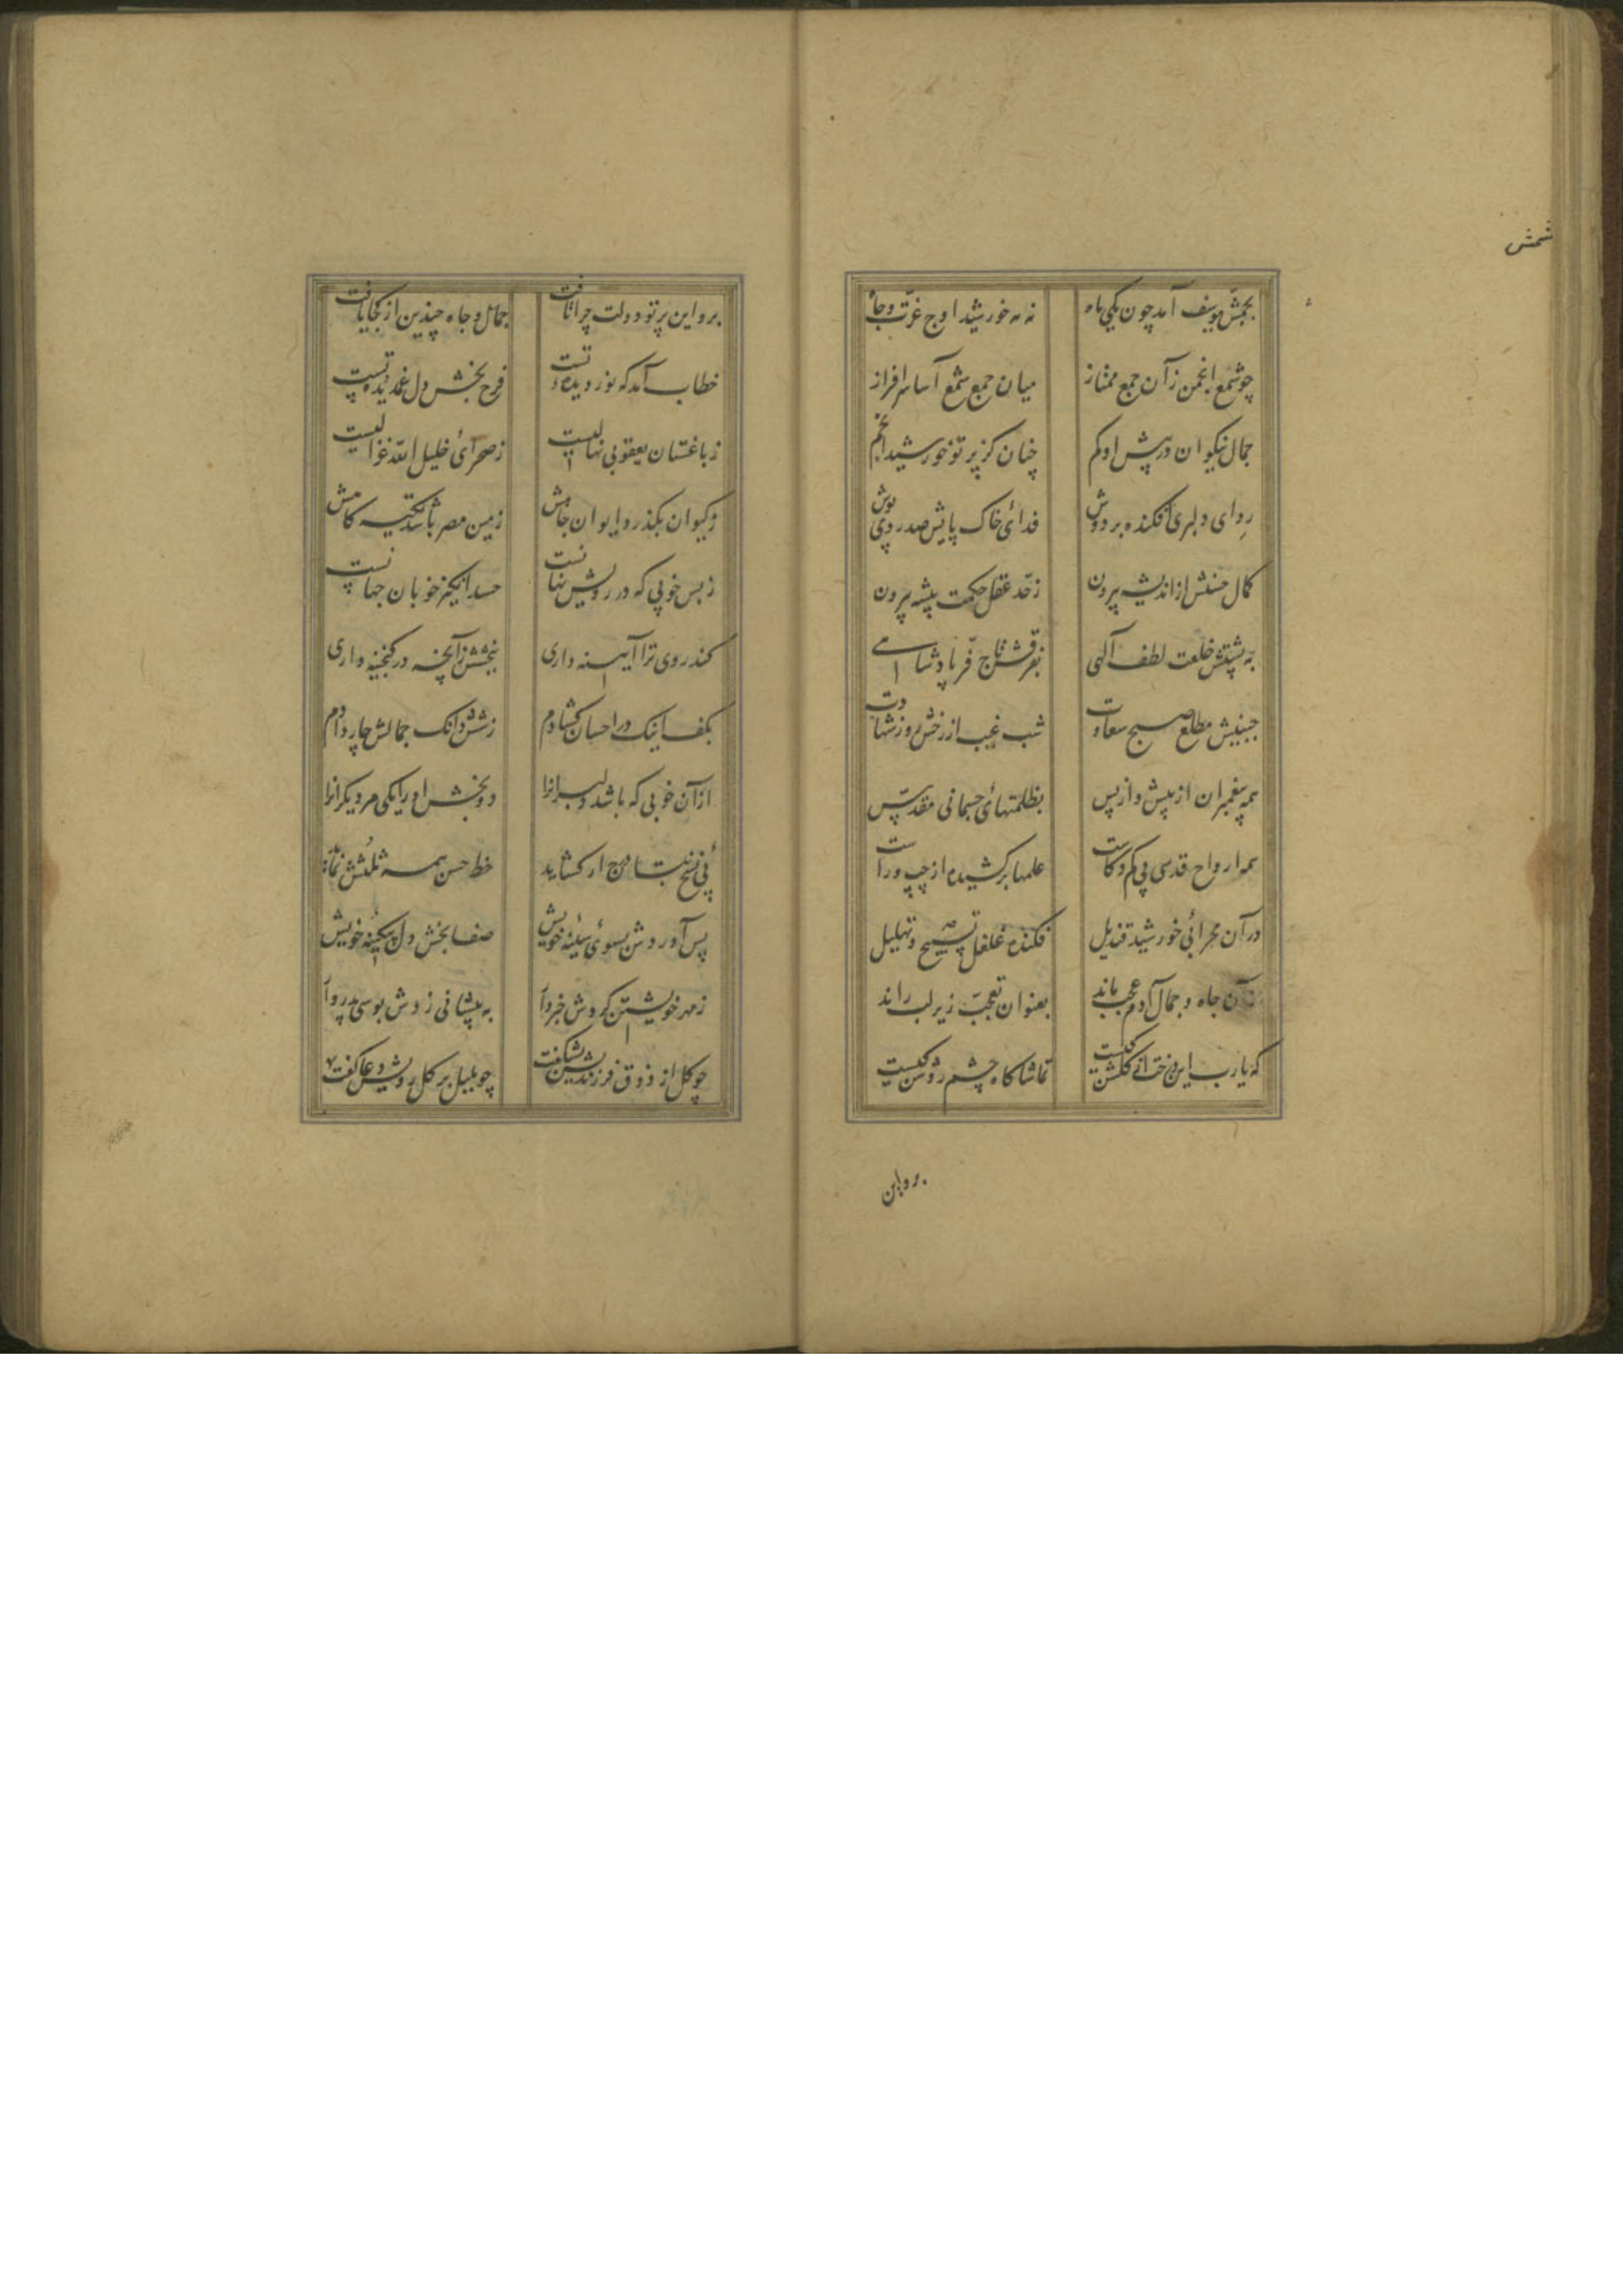 شمش
بچشمش یوسف آمد چون یکی ماه
نه مه خورشید اوج عزت و جاه
چو شمع انجمن زآن جمع ممتاز
میان جمع شمع آسا سرافراز
جمال نیکوان در پیش او کم
چنان کز پرتو خورشید انجم
ردای دلبری افکنده بر دوش
فدای خاک پایش صد ردی پوش
کمال حسنش از اندیشه بیرون
ز حد عقل حکمت پیشه بیرون
به پشتش خلعت لطف آلهی
بفرقش تاج فر پادشاهی
جبینش مطلع صبح سعادت
شب غیب از رخش روز شهادت
همه پیغمبران از پیش و از پس
بظلمتهای جسمانی مقدس
همه ارواح قدسی بی کم و کاست
علمها برکشیده از چپ و راست
در آن محرابی خورشید قندیل
فکنده غلغل تسبیح و تهلیل
زآن جاه و جمال آدم عجب ماند
بعنوان تعجب زیر لب راند
که یا رب این درخت از گلشن کیست
تماشاگاه چشم روشن کیست
برو این
برو این پرتو دولت چرا تافت
جمال و جاه چندین از کجا یافت
خطاب آمد که نور دیده تست
فرح بخش دل غمدیده تست
ز باغستان یعقوبی نهالیست
ز صحرای خلیل الله غزالیست
ز کیوان بگذرد ایوان جاهش
زمین مصر باشد تختگاهش
ز بس خوبی که در رویش نهانست
حسد انگیز خوبان جهانست
کند روی ترا آیینه داری
ببخشش زآنچه در گنجینه داری
بگفت اینک در احسان گشادم
ز شش دانگ جمالش چار دادم
از آن خوبی که باشد دلبرانرا
دو بخش او را یکی مر دیگرانرا
خط حسن همه ثلثش نماید
پس آوردش بسوی سینه خویش
صفا بخش دل بیکینه خویش
ز مهر خویشتن کردش خبردار
به پیشانی زدش بوسی پدروار
چو گل از ذوق فرزندیش بشکفت
چو بلبل بر گل رویش دعا گفت